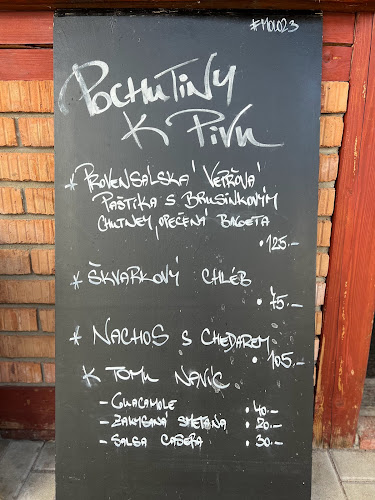 #MOLO23
POCHUTINY
K PIVU
* PROVENSALSKÁ VEPŘOVÁ
PAŠTIKA S BRUSINKOVÝM
CHUTNEY, OPEČENÁ BAGETA
• 125.-
* ŠKVARKOVÝ CHLÉB
• 75.-
* NACHOS S CHEDAREM
• 105.-
K TOMU NAVÍC
- GUACAMOLE • 40.-
- ZAKYSANÁ SMETANA • 20.-
- SALSA CASERA • 30.-